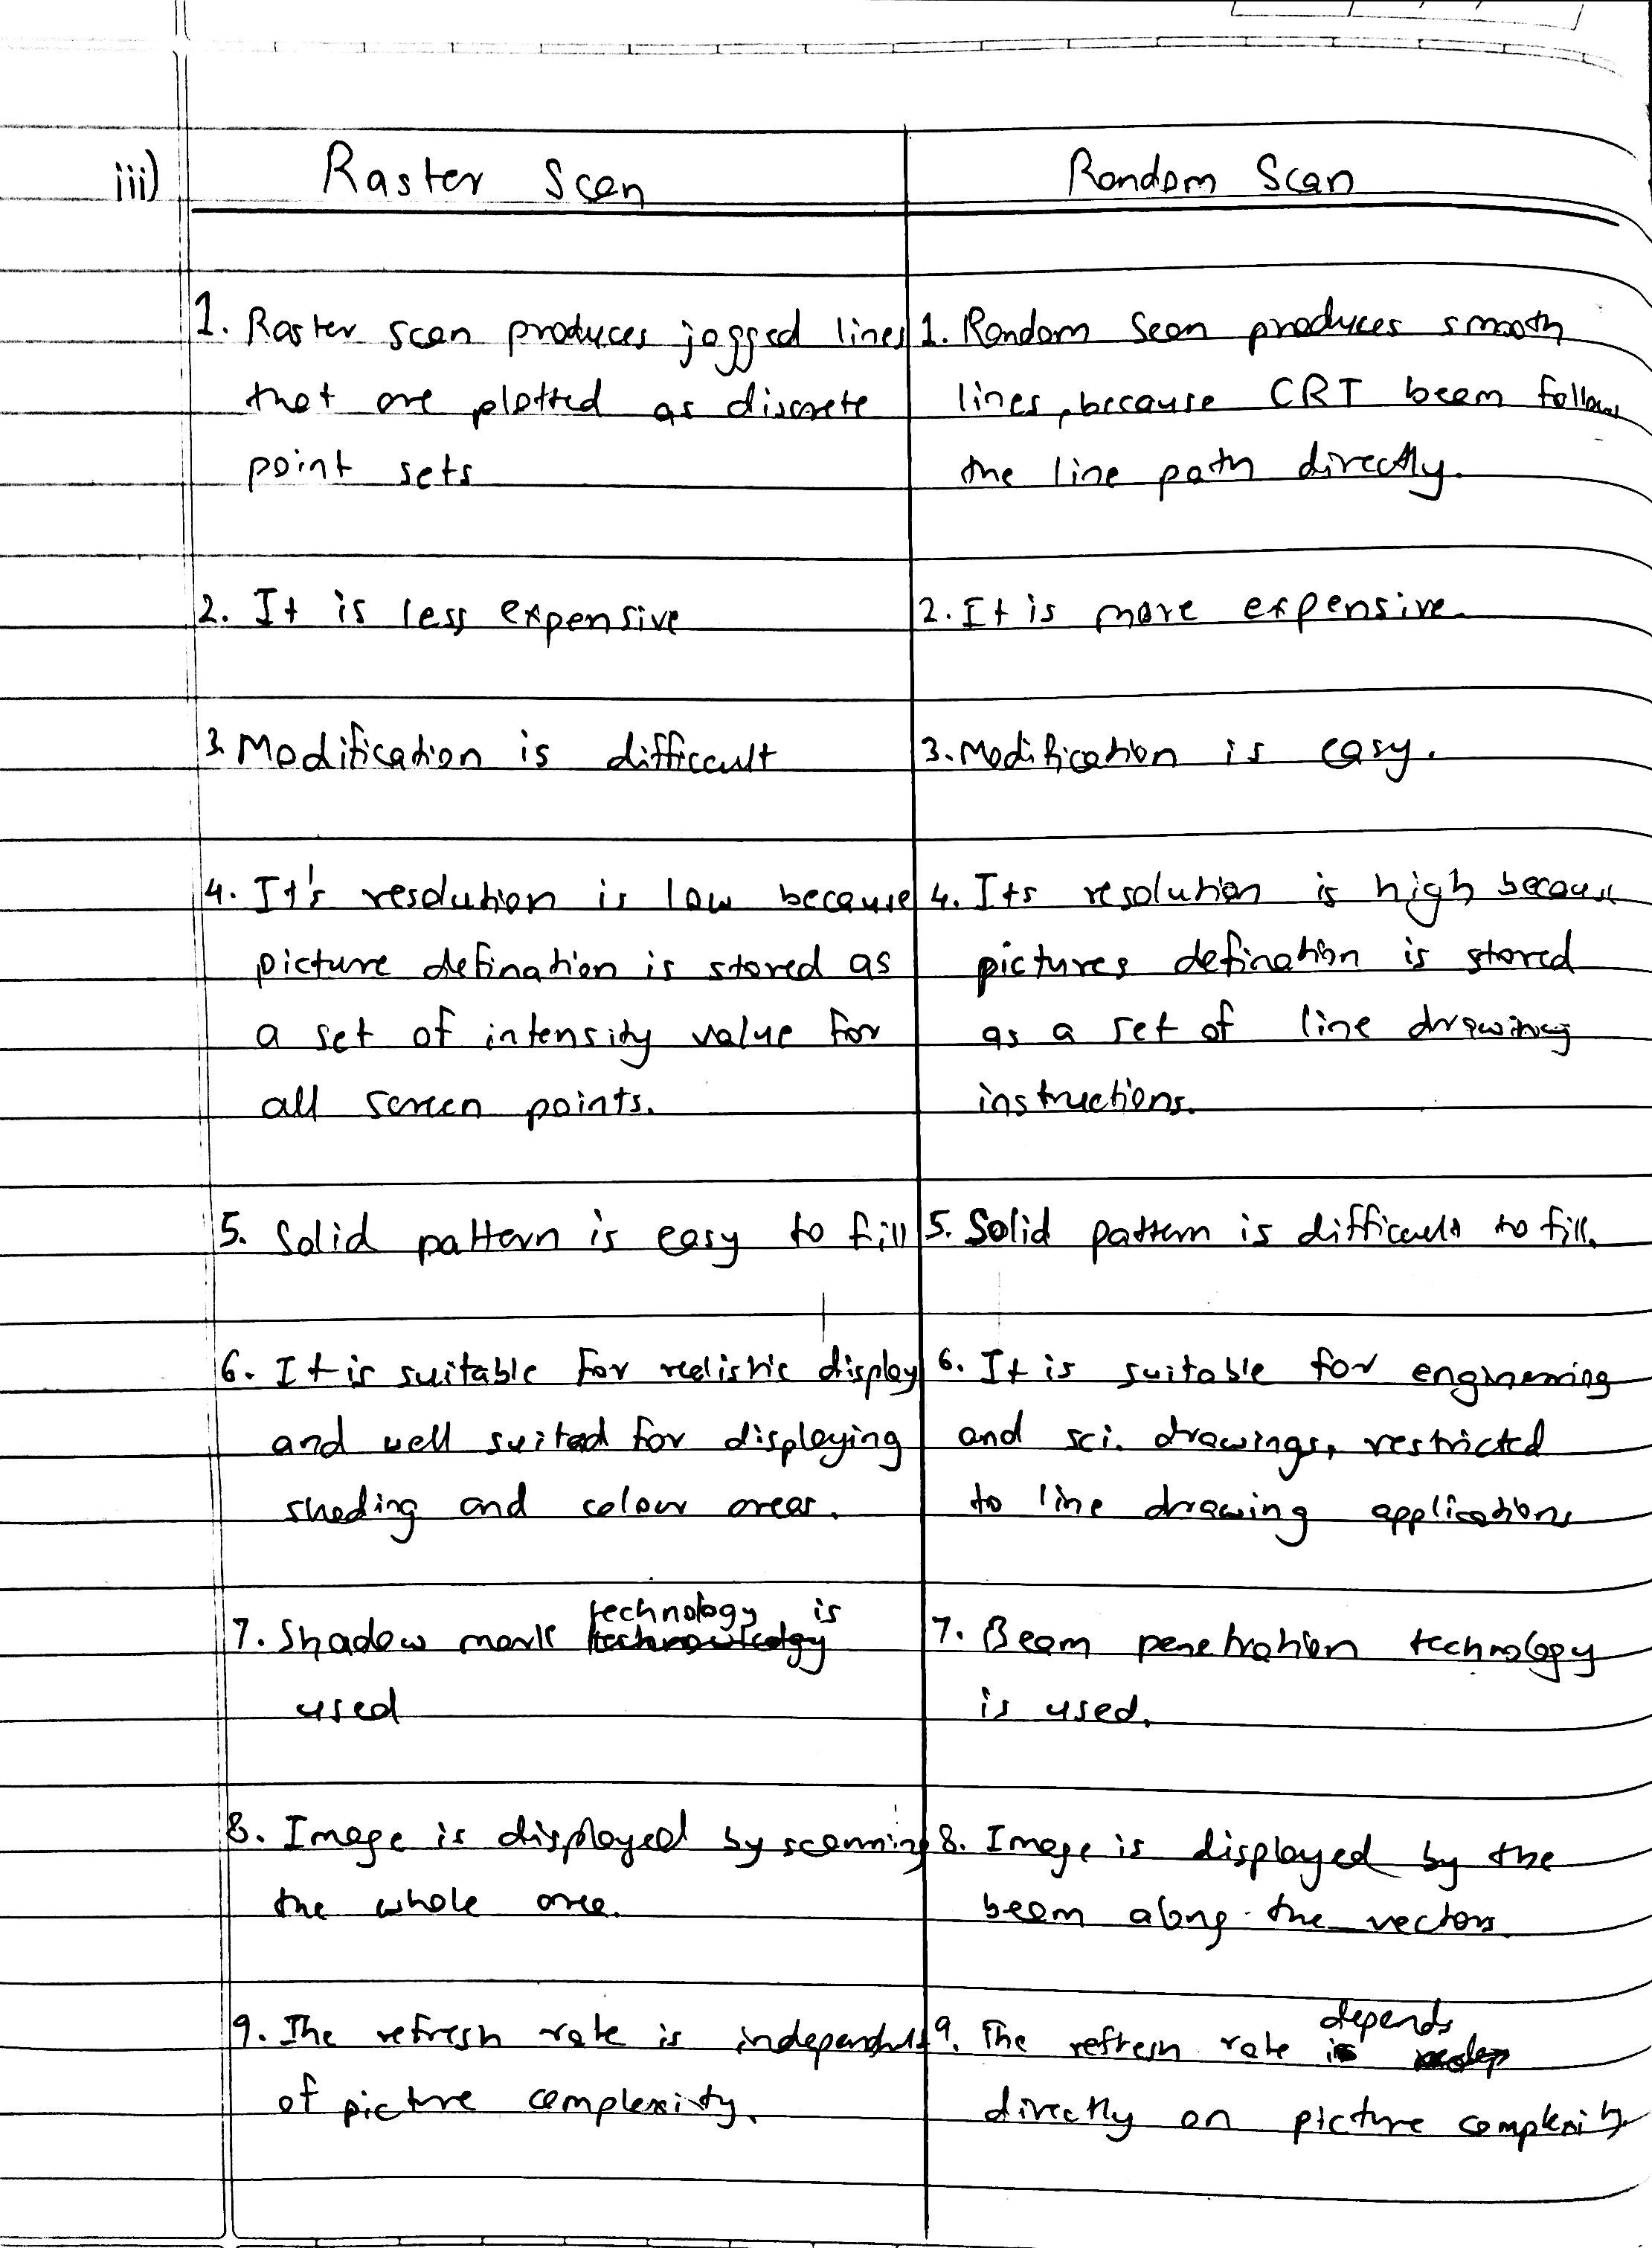 iii) Raster Scan
Random Scan
1. Raster scan produces jagged lines
that are plotted as discrete
point sets
1. Random Scan produces smooth
lines, because CRT beam follows
the line path directly.
2. It is less expensive
2. It is more expensive.
3. Modification is difficult
3. Modification is easy.
4. It's resolution is low because
picture defination is stored as
a set of intensity value for
all screen points.
4. Its resolution is high because
pictures defination is stored
as a set of line drawing
instructions.
5. Solid pattern is easy to fill
5. Solid pattern is difficult to fill.
6. It is suitable for relistic display
and well suited for displaying
shading and colour areas.
6. It is suitable for engineering
and sci. drawings, restricted
to line drawing applications
7. Shadow mark technology is
used
7. Beam penetration technology
is used.
8. Image is displayed by scanning
the whole area.
8. Image is displayed by the
beam along the vectors
9. The refresh rate is independent
of picture complexity.
9. The refresh rate depends
directly on picture complexity